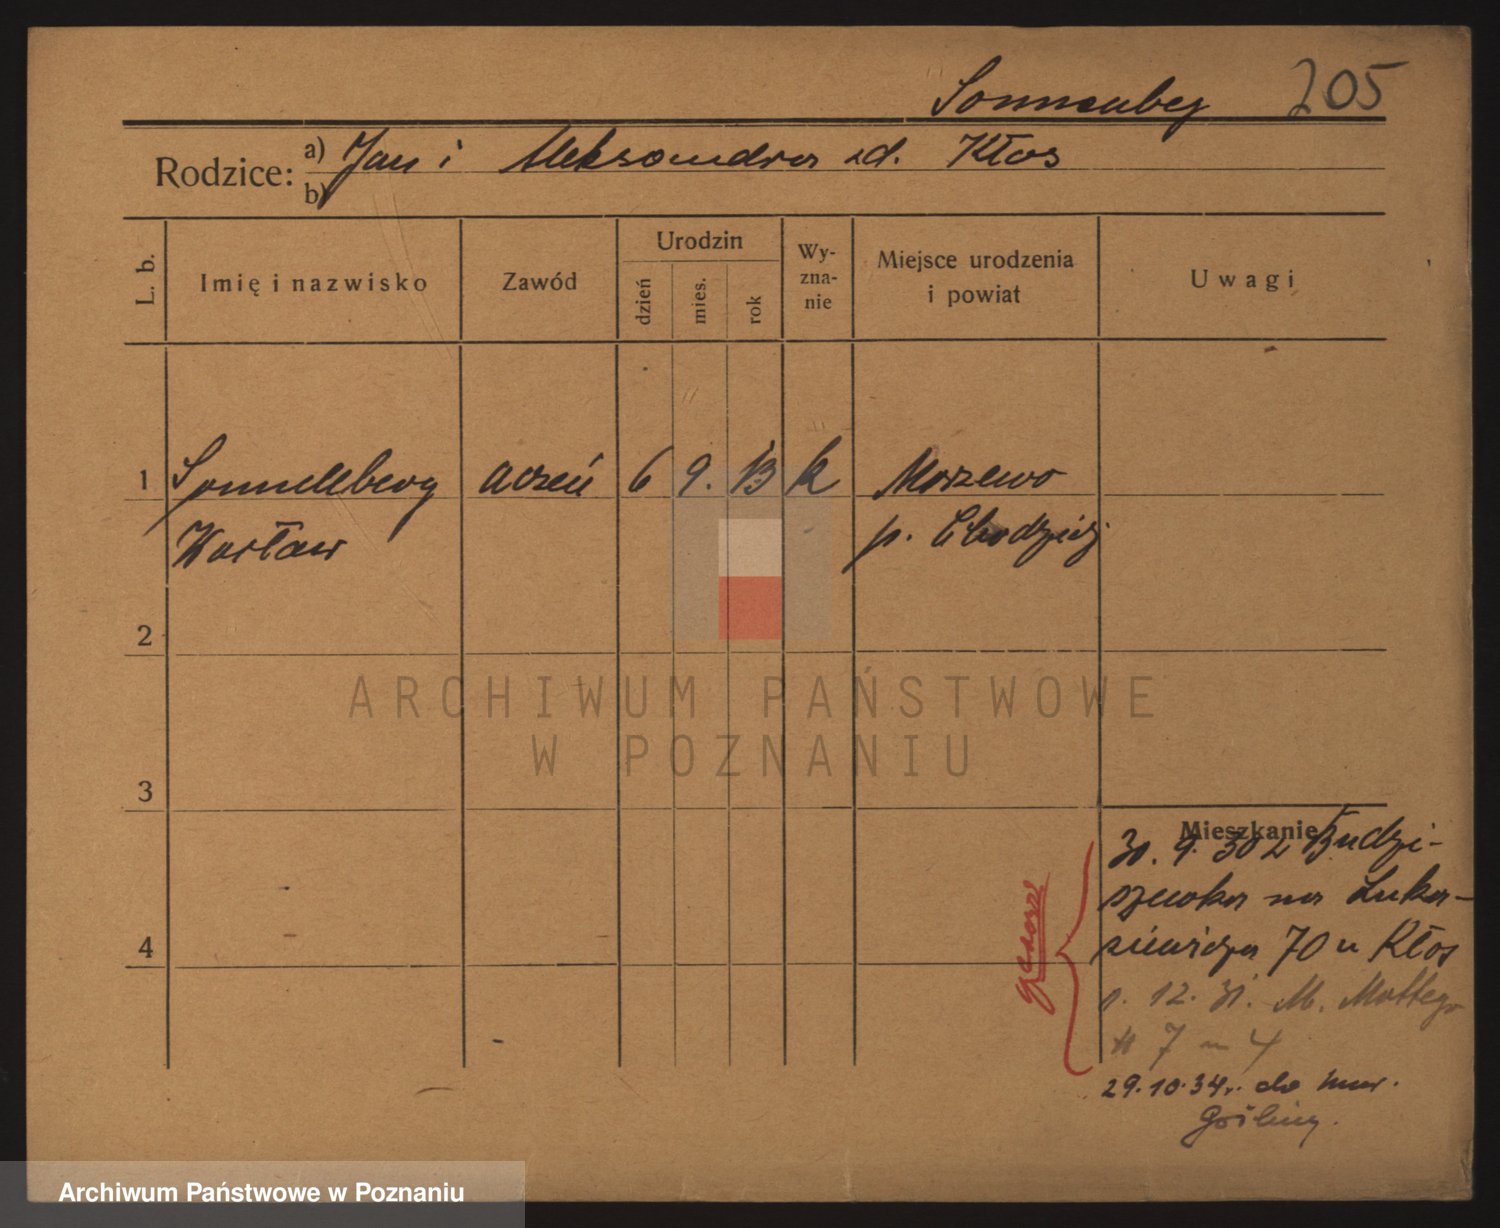 Sonnenberg 205
Rodzice: a) Jan i Aleksandra zd. Kłos
b)
L. b. Imię i nazwisko Zawód Urodzin dzień mies. rok Wyznanie Miejsce urodzenia i powiat Uwagi
1 Sonnenberg uczeń 6 9. 13 k Morzewo
Wacław p. Chodzież
2
ARCHIWUM PAŃSTWOWE
W POZNANIU
3
Mieszkanie
30. 9. 30 z Budzi-
szewka na Łuka-
siewicza 70 u Kłos
1. 12. 31. M. Mottego
7 m 4
29.10.34r. do Mur.
Gośliny.
4
Archiwum Państwowe w Poznaniu